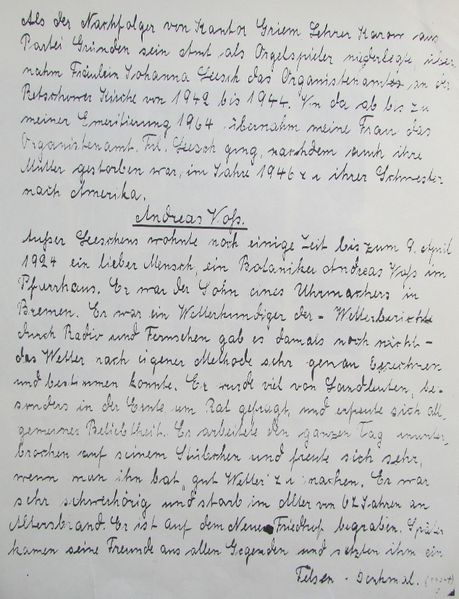 Als der Nachfolger von Kantor Griem Lehrer Karow aus
Partei Gründen sein Amt als Orgelspieler niederlegte über
nahm Fräulein Johanna Leesch das Organistenamt an der
Retschower Kirche von 1942 bis 1944. Von da ab bis zu
meiner Emeritierung 1964 übernahm meine Frau das
Organistenamt. Frl. Leesch ging, nachdem auch ihre
Mutter gestorben war, im Jahre 1946 zu ihrer Schwester
nach Amerika.
Andreas Voß.
Außer Leeschens wohnte noch einige Zeit bis zum 9. April
1924 ein lieber Mensch, ein Botaniker Andreas Voß im
Pfarrhaus. Er war der Sohn eines Uhrmachers in
Bremen. Er war ein Wetterkundiger der - Wetterberichte
durch Radio und Fernsehen gab es damals noch nicht -
das Wetter nach eigener Methode sehr genau errechnen
und bestimmen konnte. Er wurde viel von Landleuten, be-
sonders in der Ernte um Rat gefragt, und erfreute sich all
gemeiner Beliebtheit. Er arbeitete den ganzen Tag ununter
brochen auf seinem Stübchen und freute sich sehr,
wenn man ihn bat „gut Wetter" zu machen. Er war
sehr schwerhörig und starb im Alter von 67 Jahren an
Altersbrand. Er ist auf dem Neuen Friedhof begraben. Später
kamen seine Freunde aus allen Gegenden und setzten ihm ein
Felsen - Denkmal.